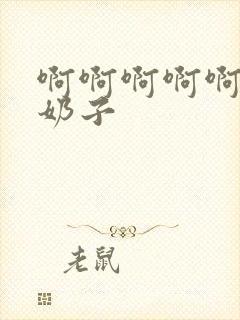 啊啊啊啊啊
奶子
老鼠